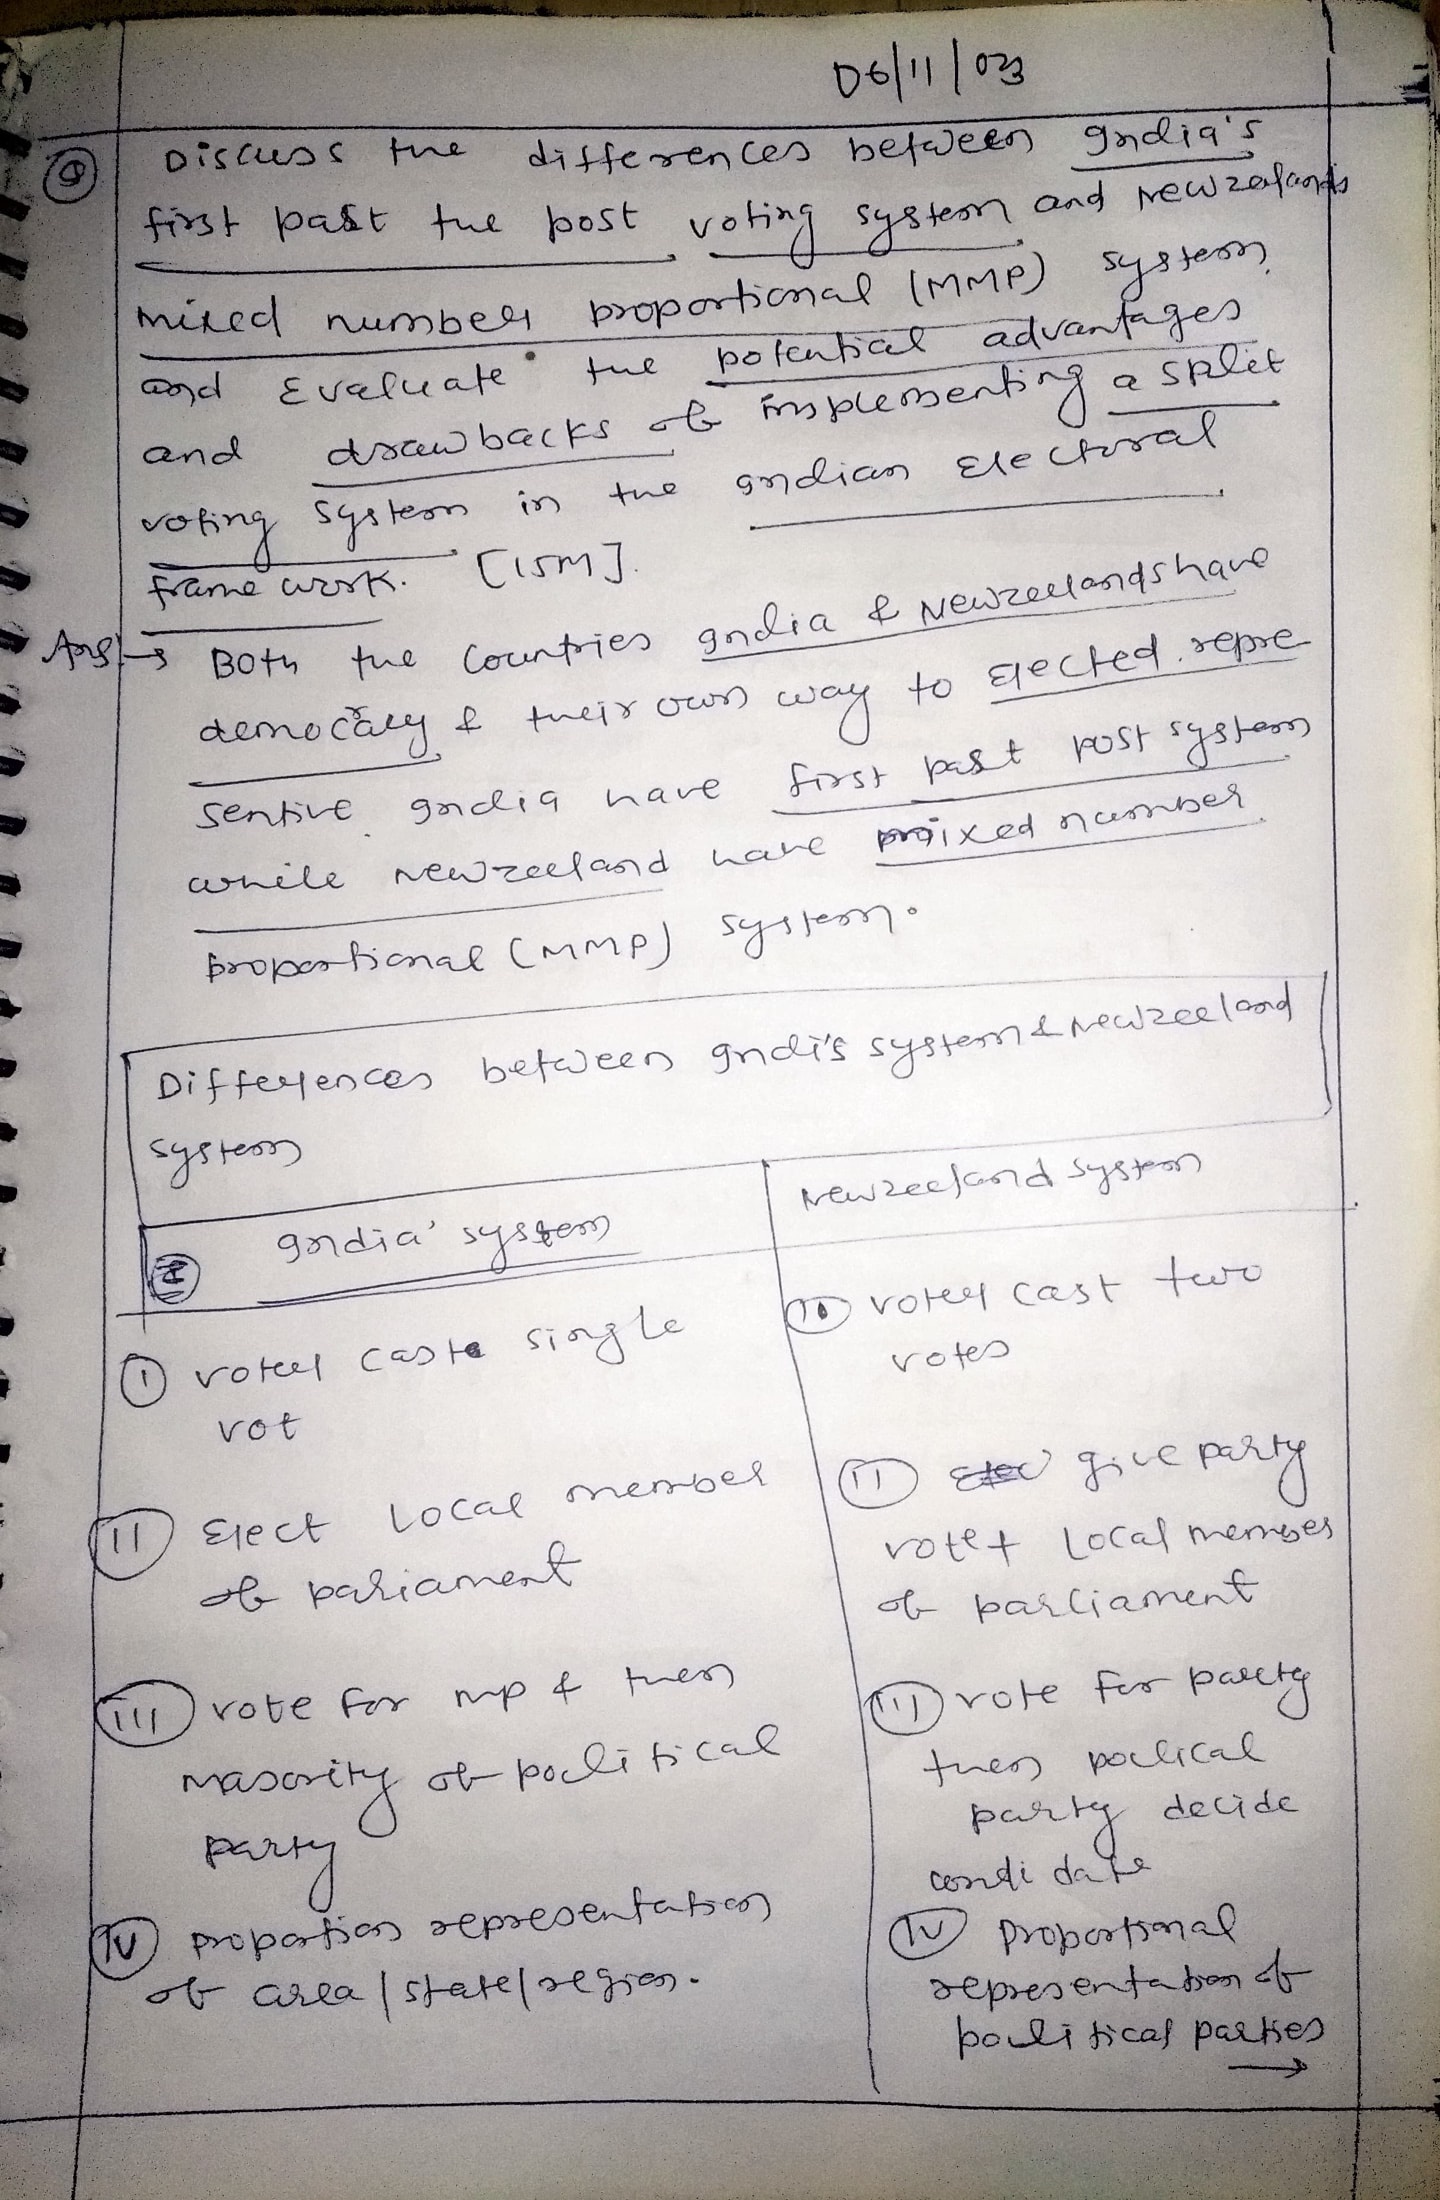 06/11/023
Q Discuss the differences between India's
first past the post voting system and Newzealands
mixed number proportional (MMP) system
and Evaluate the potential advantages
and drawbacks of implementing a split
voting system in the Indian Electoral
frame work. [15M].
Ans:→ Both the Countries India & Newzeelands have
democracy & their own way to Elected repre
sentive India have first past post system
while Newzeeland have mixed number
proportional (MMP) system.
Differences between Indi's system & Newzeeland
system
India' system
Newzeeland system
(I) voter caste single
vot
(II) Elect Local member
of pariament
(III) vote for mp & then
majority of political
party
(IV) proportion representation
of area / state / region.
(I) voter cast two
votes
(II) give party
vote + Local member
of parliament
(III) vote for party
then polical
party decide
condidate
(IV) proportional
representation of
political parties
→